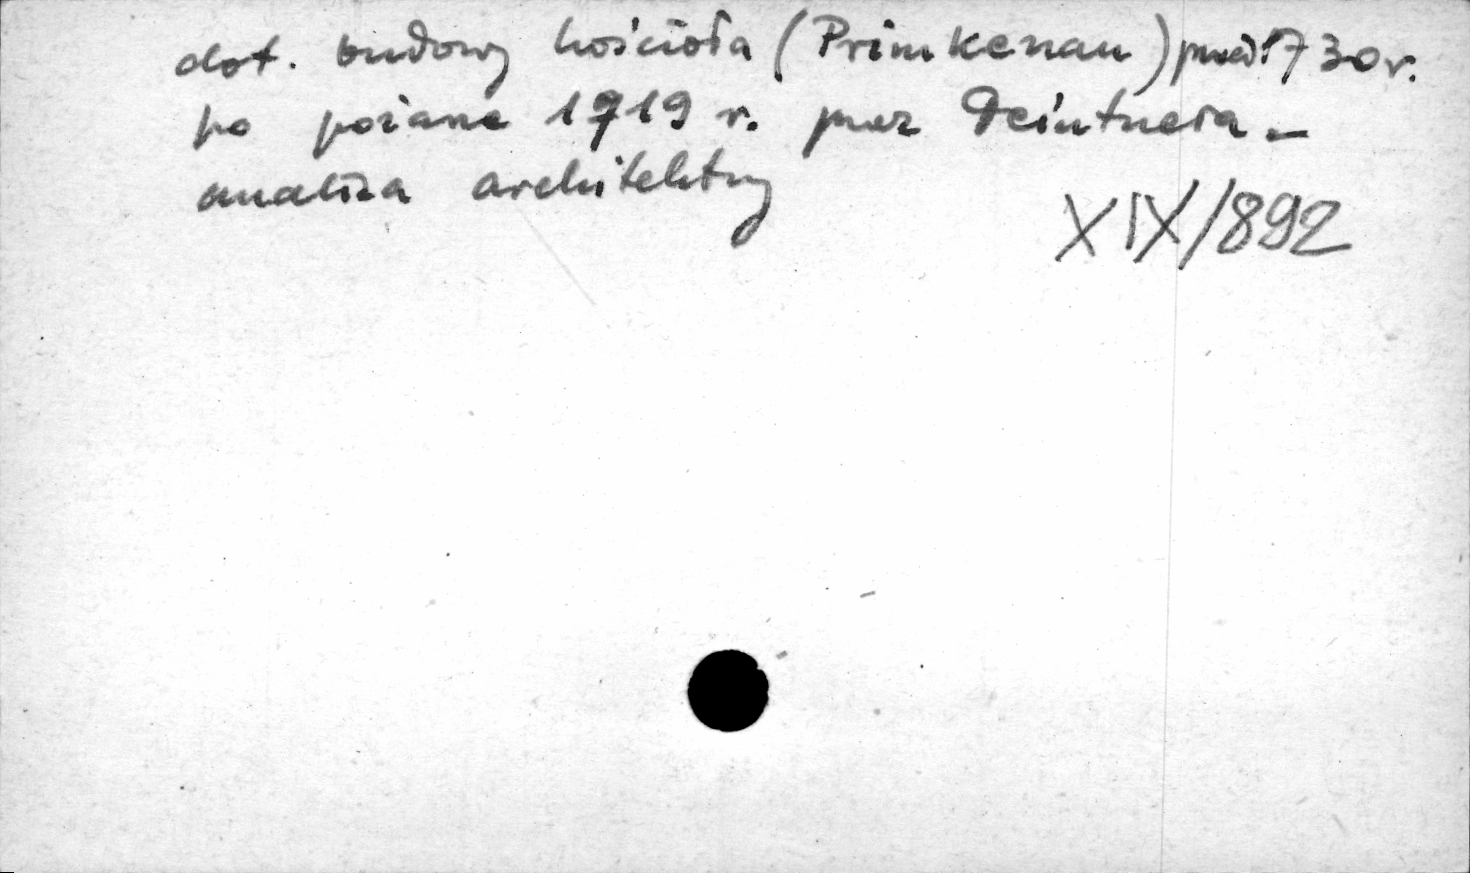 dot. budowy kościoła (Primkenau) przed 1730 r.
po pożarze 1719 r. przez Deintnera –
analiza architektury
XIX/892